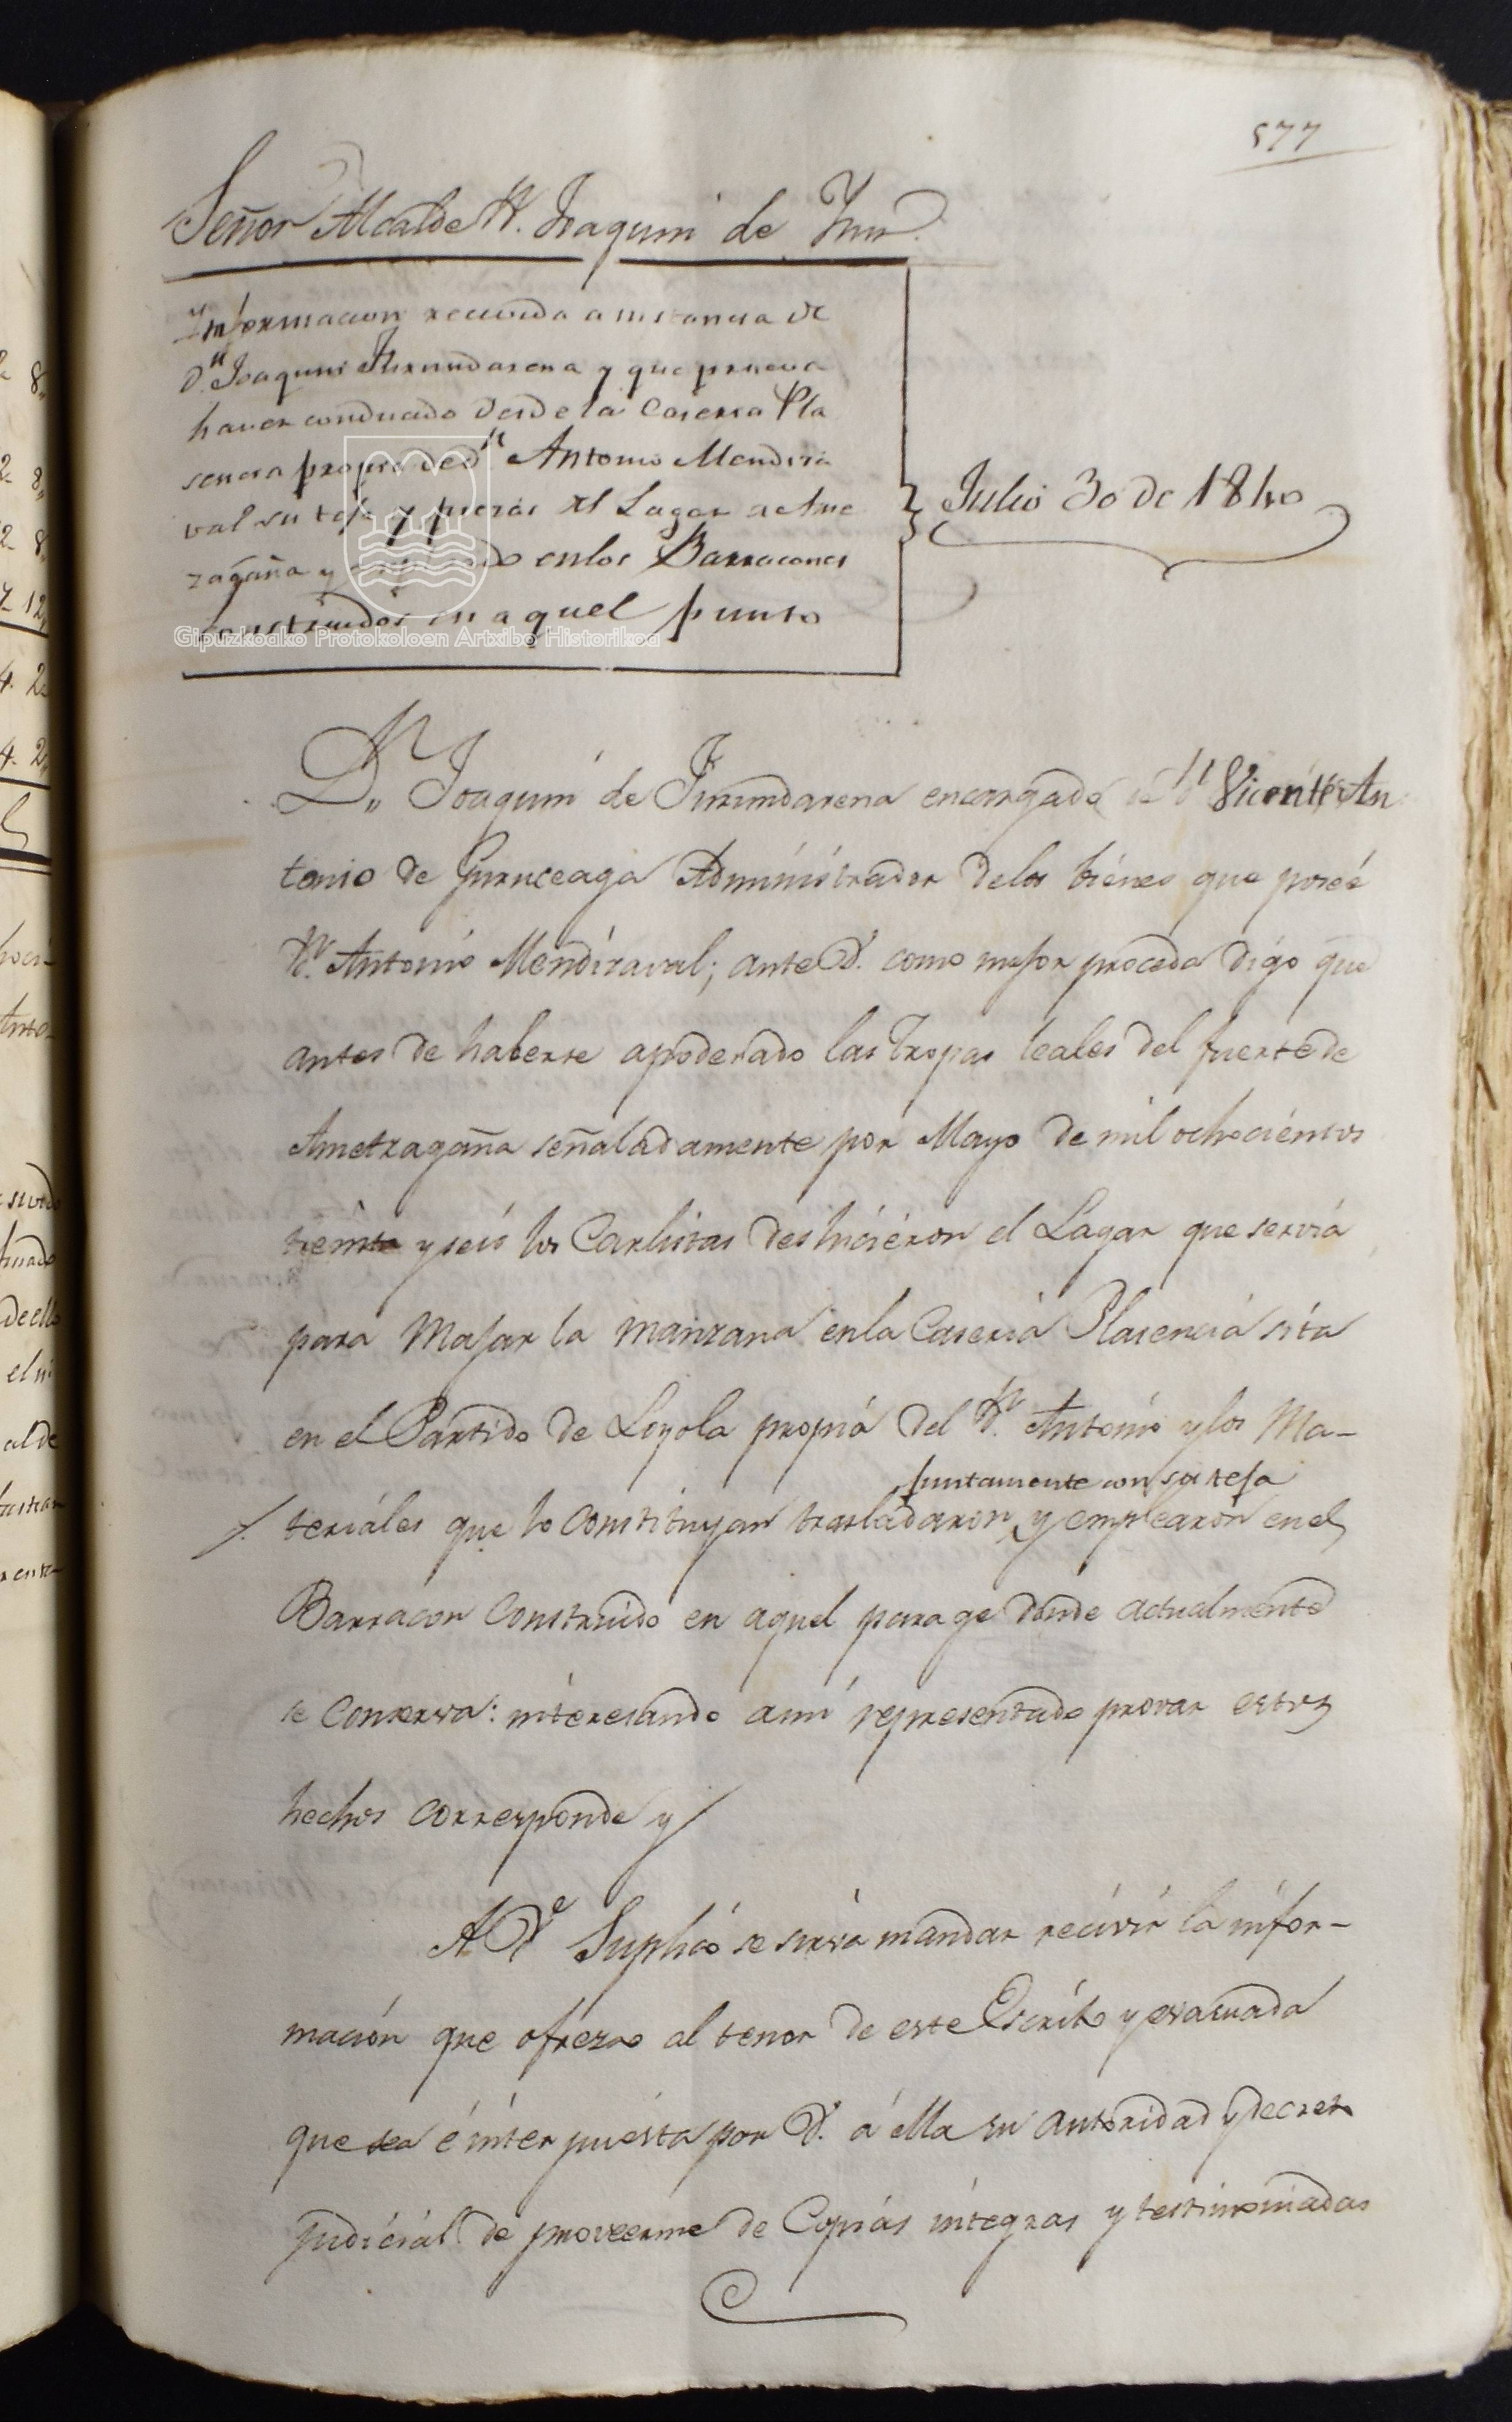 577
Señor Alcalde Dn. Joaquin de
Informacion recivida a instancia de
Dn. Joaquin Irumdarena y que prueva
haver conducido desde la Caseria Pla
sencia propia de Dn. Antonio Mendira
val su teja y piezas del Lagar a Ame
zagaña y en los Barracones
construidos en aquel punto
Julio 30 de 1840
Gipuzkoako Protokoloen Artxibo Historikoa
Dn. Joaquin de Irumdarena encargado de Dn. Vicente An
tonio de Guruceaga Administrador de los biénes que poseé
Dn. Antonio Mendiraval; ante V. como mejor proceda digo que
antes de haberse apoderado las tropas leales del fuerte de
Ametzagaña señaladamente por Mayo de mil ochociéntos
treinta y seis los Carlistas deshiciéron el Lagar que servia
para Majar la manzana en la Caseria Plasencia sita
en el Partido de Loyola propia del Dn. Antonio y los Ma-
juntamente con su teja
teriáles que lo Constituyan trasladaron y emplearon en el
Barracon Construido en aquel parage donde actualmente
se Conserva: interesando a mi representado provar estos
hechos corresponde y
A V. Suplico se sirva mandar recivir la infor-
mación que ofrezco al tenor de este Escrito y evacuada
que sea é interpuésta por V. á ella su autoridad y decreto
judiciál de proveerme de Copias integras y testimoniadas